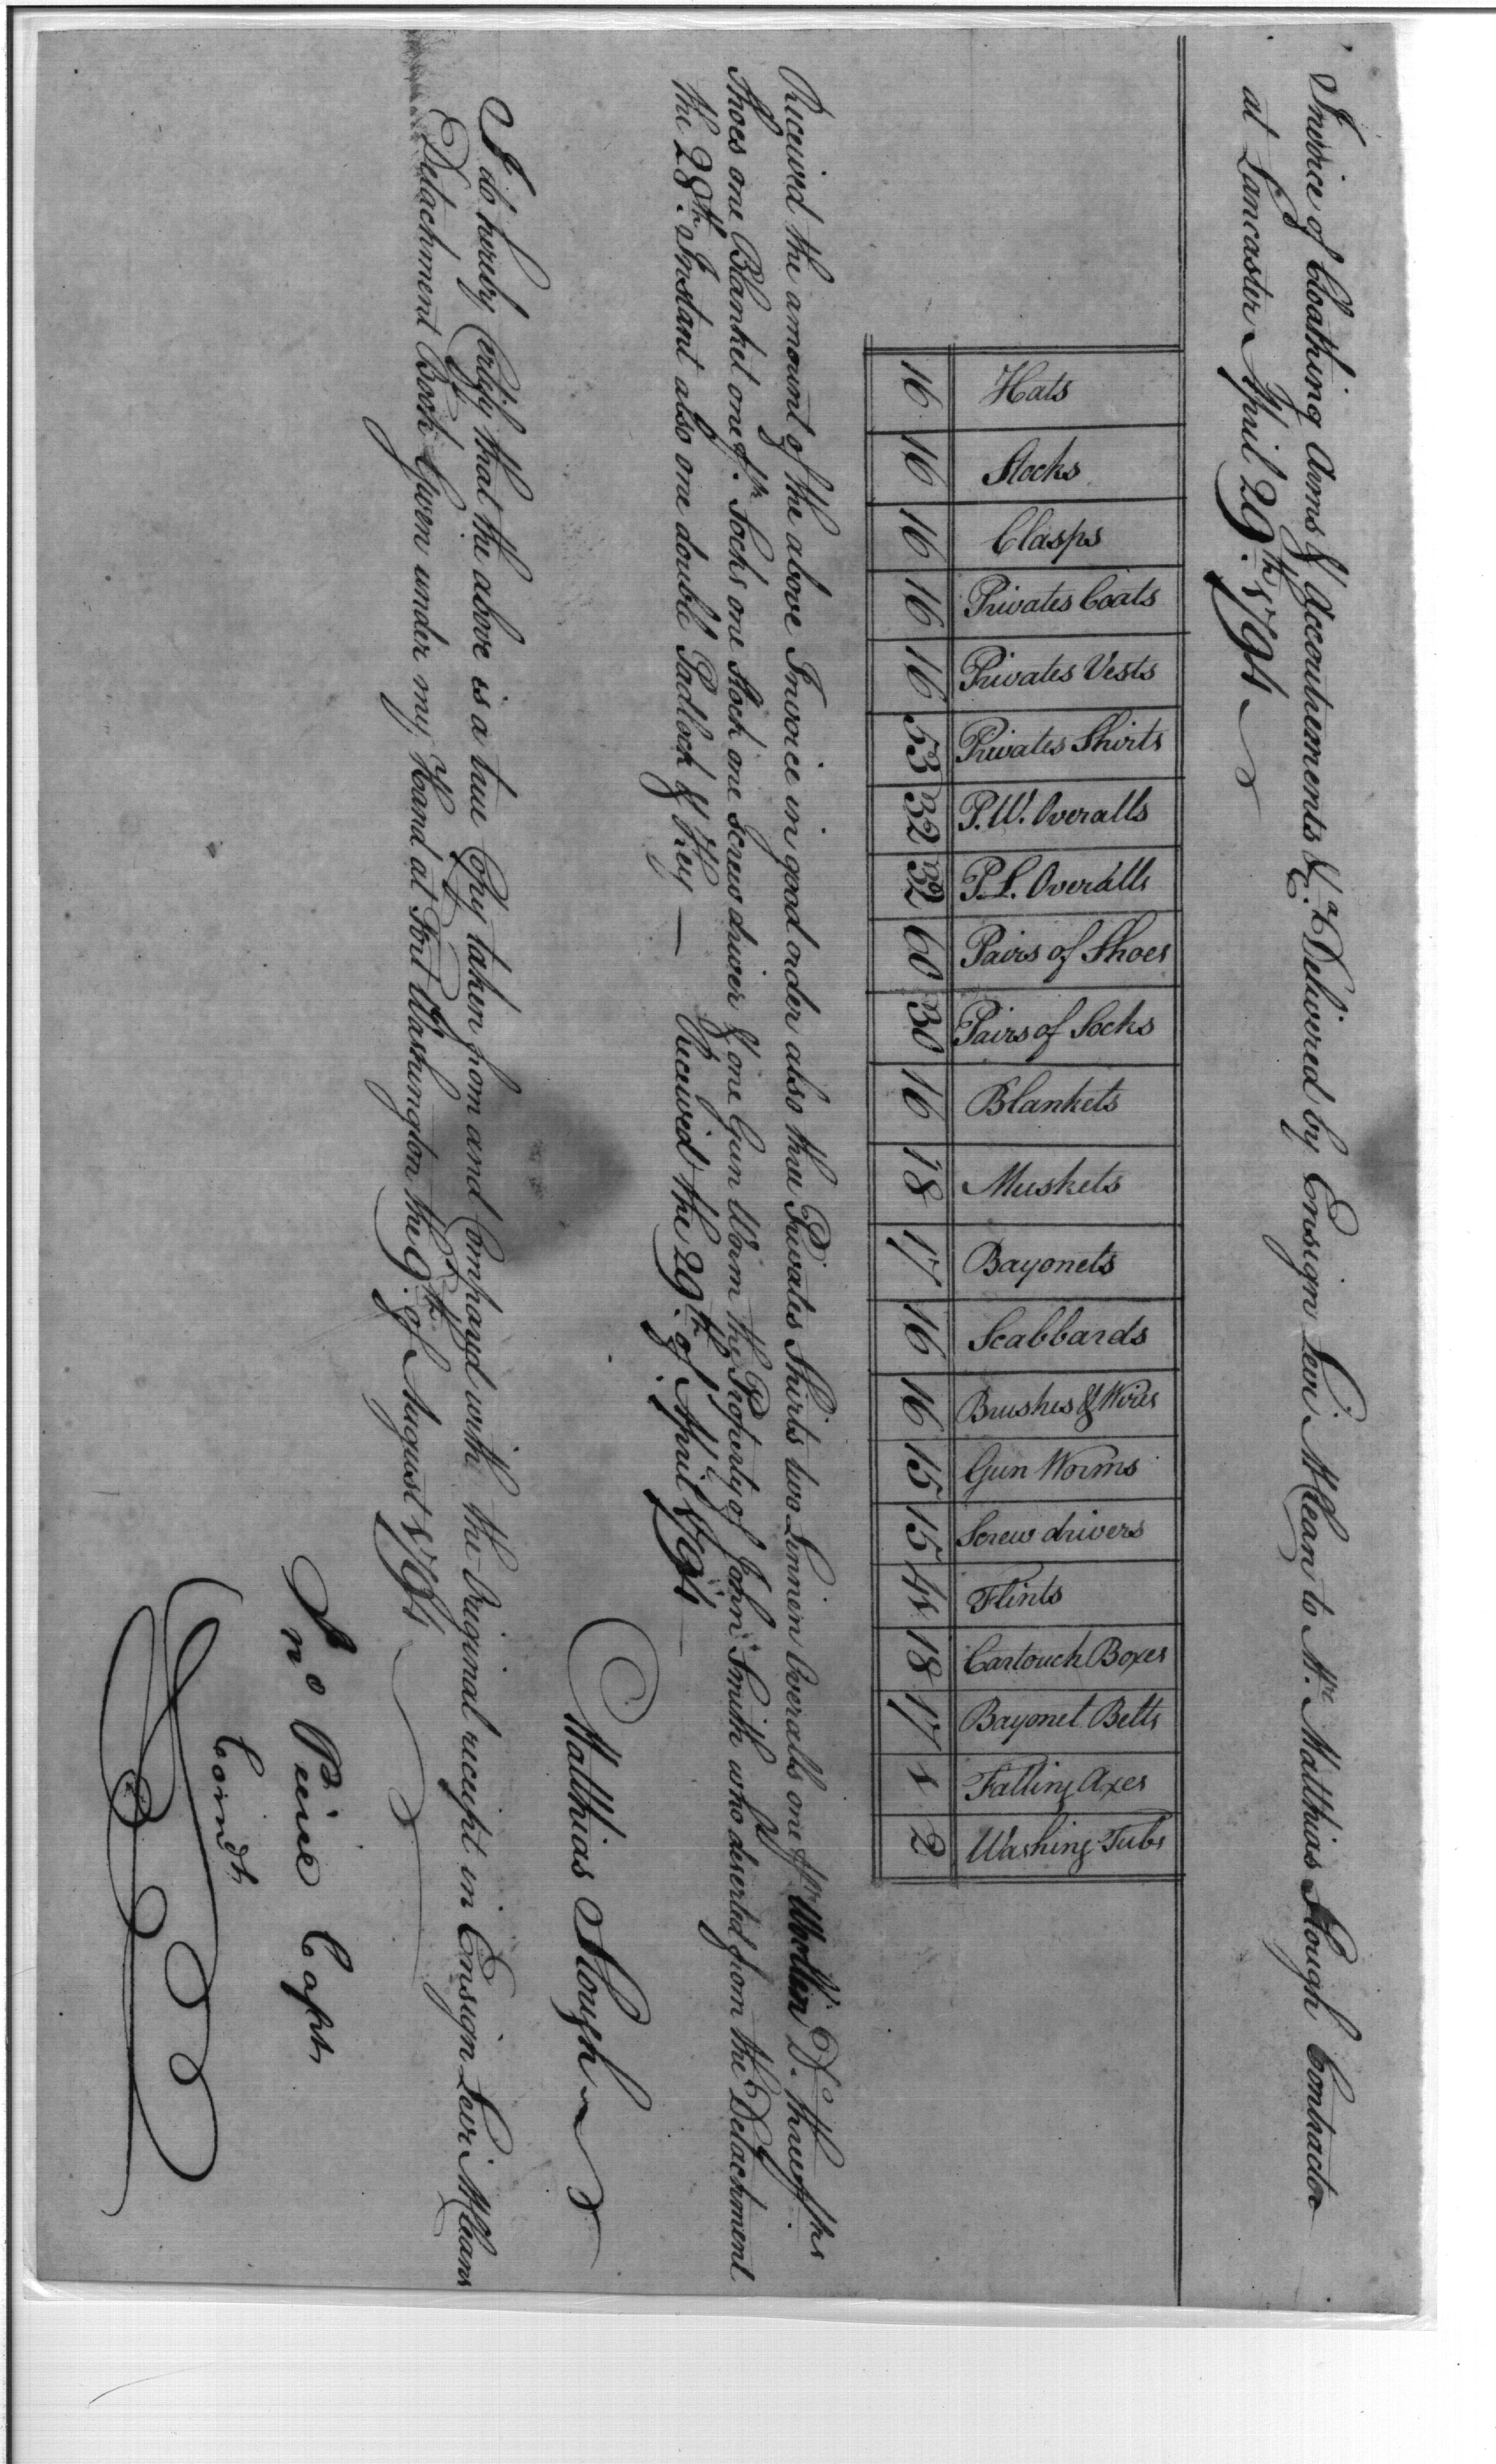 Invoice of Cloathing Arms & Accoutrements &ca. Delivered by Ensign Levi McClean to Mr. Matthias Slough Contractor
at Lancaster April 29th. 1794
Hats 16
Stocks 16
Clasps 16
Privates Coats 16
Privates Vests 16
Privates Shirts 53
P.W. Overalls 32
P.L. Overalls 32
Pairs of Shoes 60
Pairs of Socks 30
Blankets 16
Muskets 18
Bayonets 17
Scabbards 16
Brushes & Wires 16
Gun Worms 15
Screw drivers 15
Flints 41
Cartouch Boxes 18
Bayonet Belts 17
Falling Axes 1
Washing Tubs 2
Received the amount of the above Invoice in good order also three Privates Shirts two Linnen Overalls one pr Woollen Do. three prs
Shoes one Blanket one pr. Socks one Stock one screw driver & one Gun Worm the Property of John Smith who deserted from the Detachment
the 28th. Instant also one double Padlock & Key — Received the 29th. of April 1794 —
Matthias Slough
I do hereby Certify that the above is a true Copy taken from and Compared with the Original receipt in Ensign Levi McCleans
Detachment Book Given under my Hand at Fort Washington the 9th. of August 1794
Jno Peirce Capt
Comdt